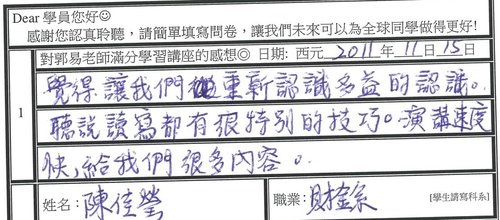 Dear 學員您好☺
感謝您認真聆聽，請簡單填寫問卷，讓我們未來可以為全球同學做得更好!
對郭易老師滿分學習講座的感想◎ 日期: 西元 2011 年 11 月 15 日
1
覺得讓我們重新認識多益的認識。
聽說讀寫都有很特別的技巧。演講速度
快，給我們很多內容。
姓名：陳佳瑩 職業：財金系 [學生請寫科系]